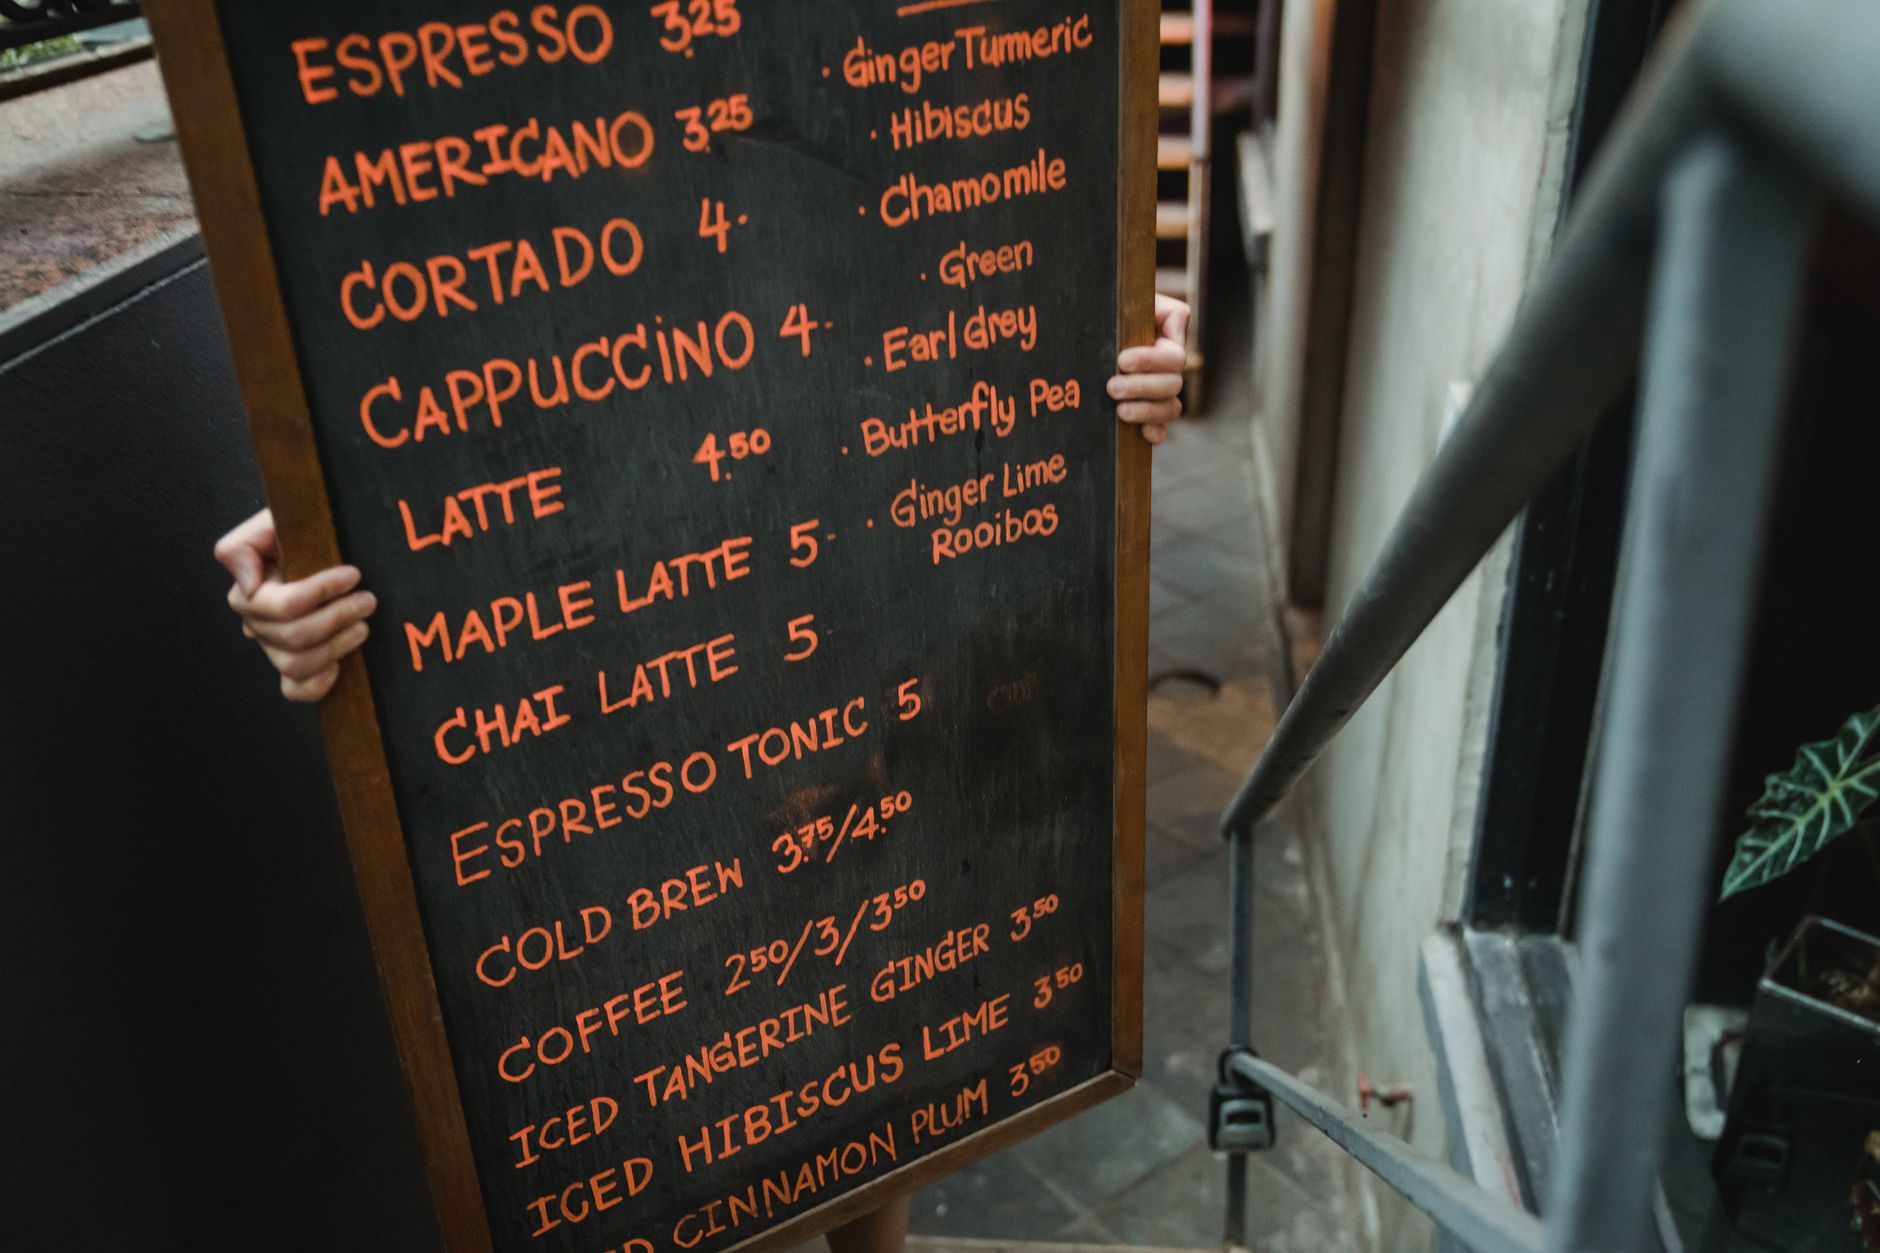 ESPRESSO 3.25
AMERICANO 3.25
CORTADO 4-
CAPPUCCINO 4-
LATTE 4.50
MAPLE LATTE 5-
CHAI LATTE 5-
ESPRESSO TONIC 5
COLD BREW 3.75/4.50
COFFEE 250/3/350
ICED TANGERINE GINGER 350
ICED HIBISCUS LIME 350
CINNAMON PLUM 350
· Ginger Turmeric
· Hibiscus
· Chamomile
· Green
· Earl Grey
· Butterfly Pea
· Ginger Lime
Rooibos